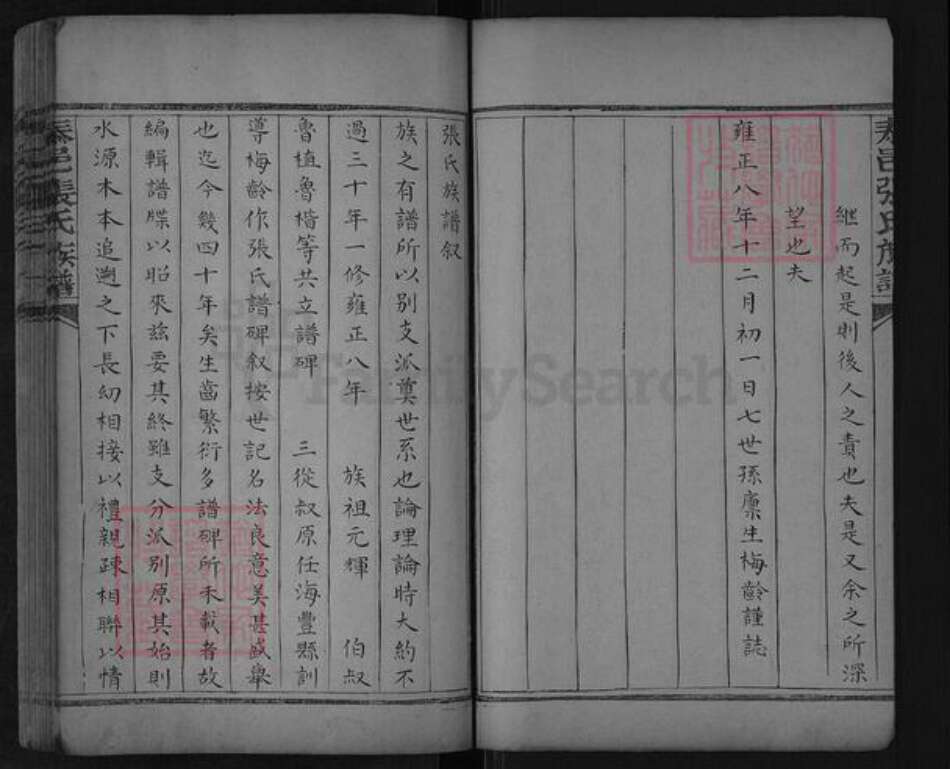 繼而起是則後人之責也夫是又余之所深
望也夫
雍正八年十二月初一日七世孫廪生梅齡謹誌
張氏族譜叙
族之有譜所以别支派奠世系也論理論時大約不
過三十年一修雍正八年 族祖元輝 伯叔
魯植魯楷等共立譜碑 三從叔原任海豐縣訓
導梅齡作張氏譜碑叙按世記名法良意美甚盛舉
也迄今幾四十年矣生齒繁衍多譜碑所未載者故
編輯譜牒以昭來兹要其終雖支分派别原其始則
水源木本追遡之下長幼相接以禮親疎相聯以情
邑張氏族譜
FamilySearch